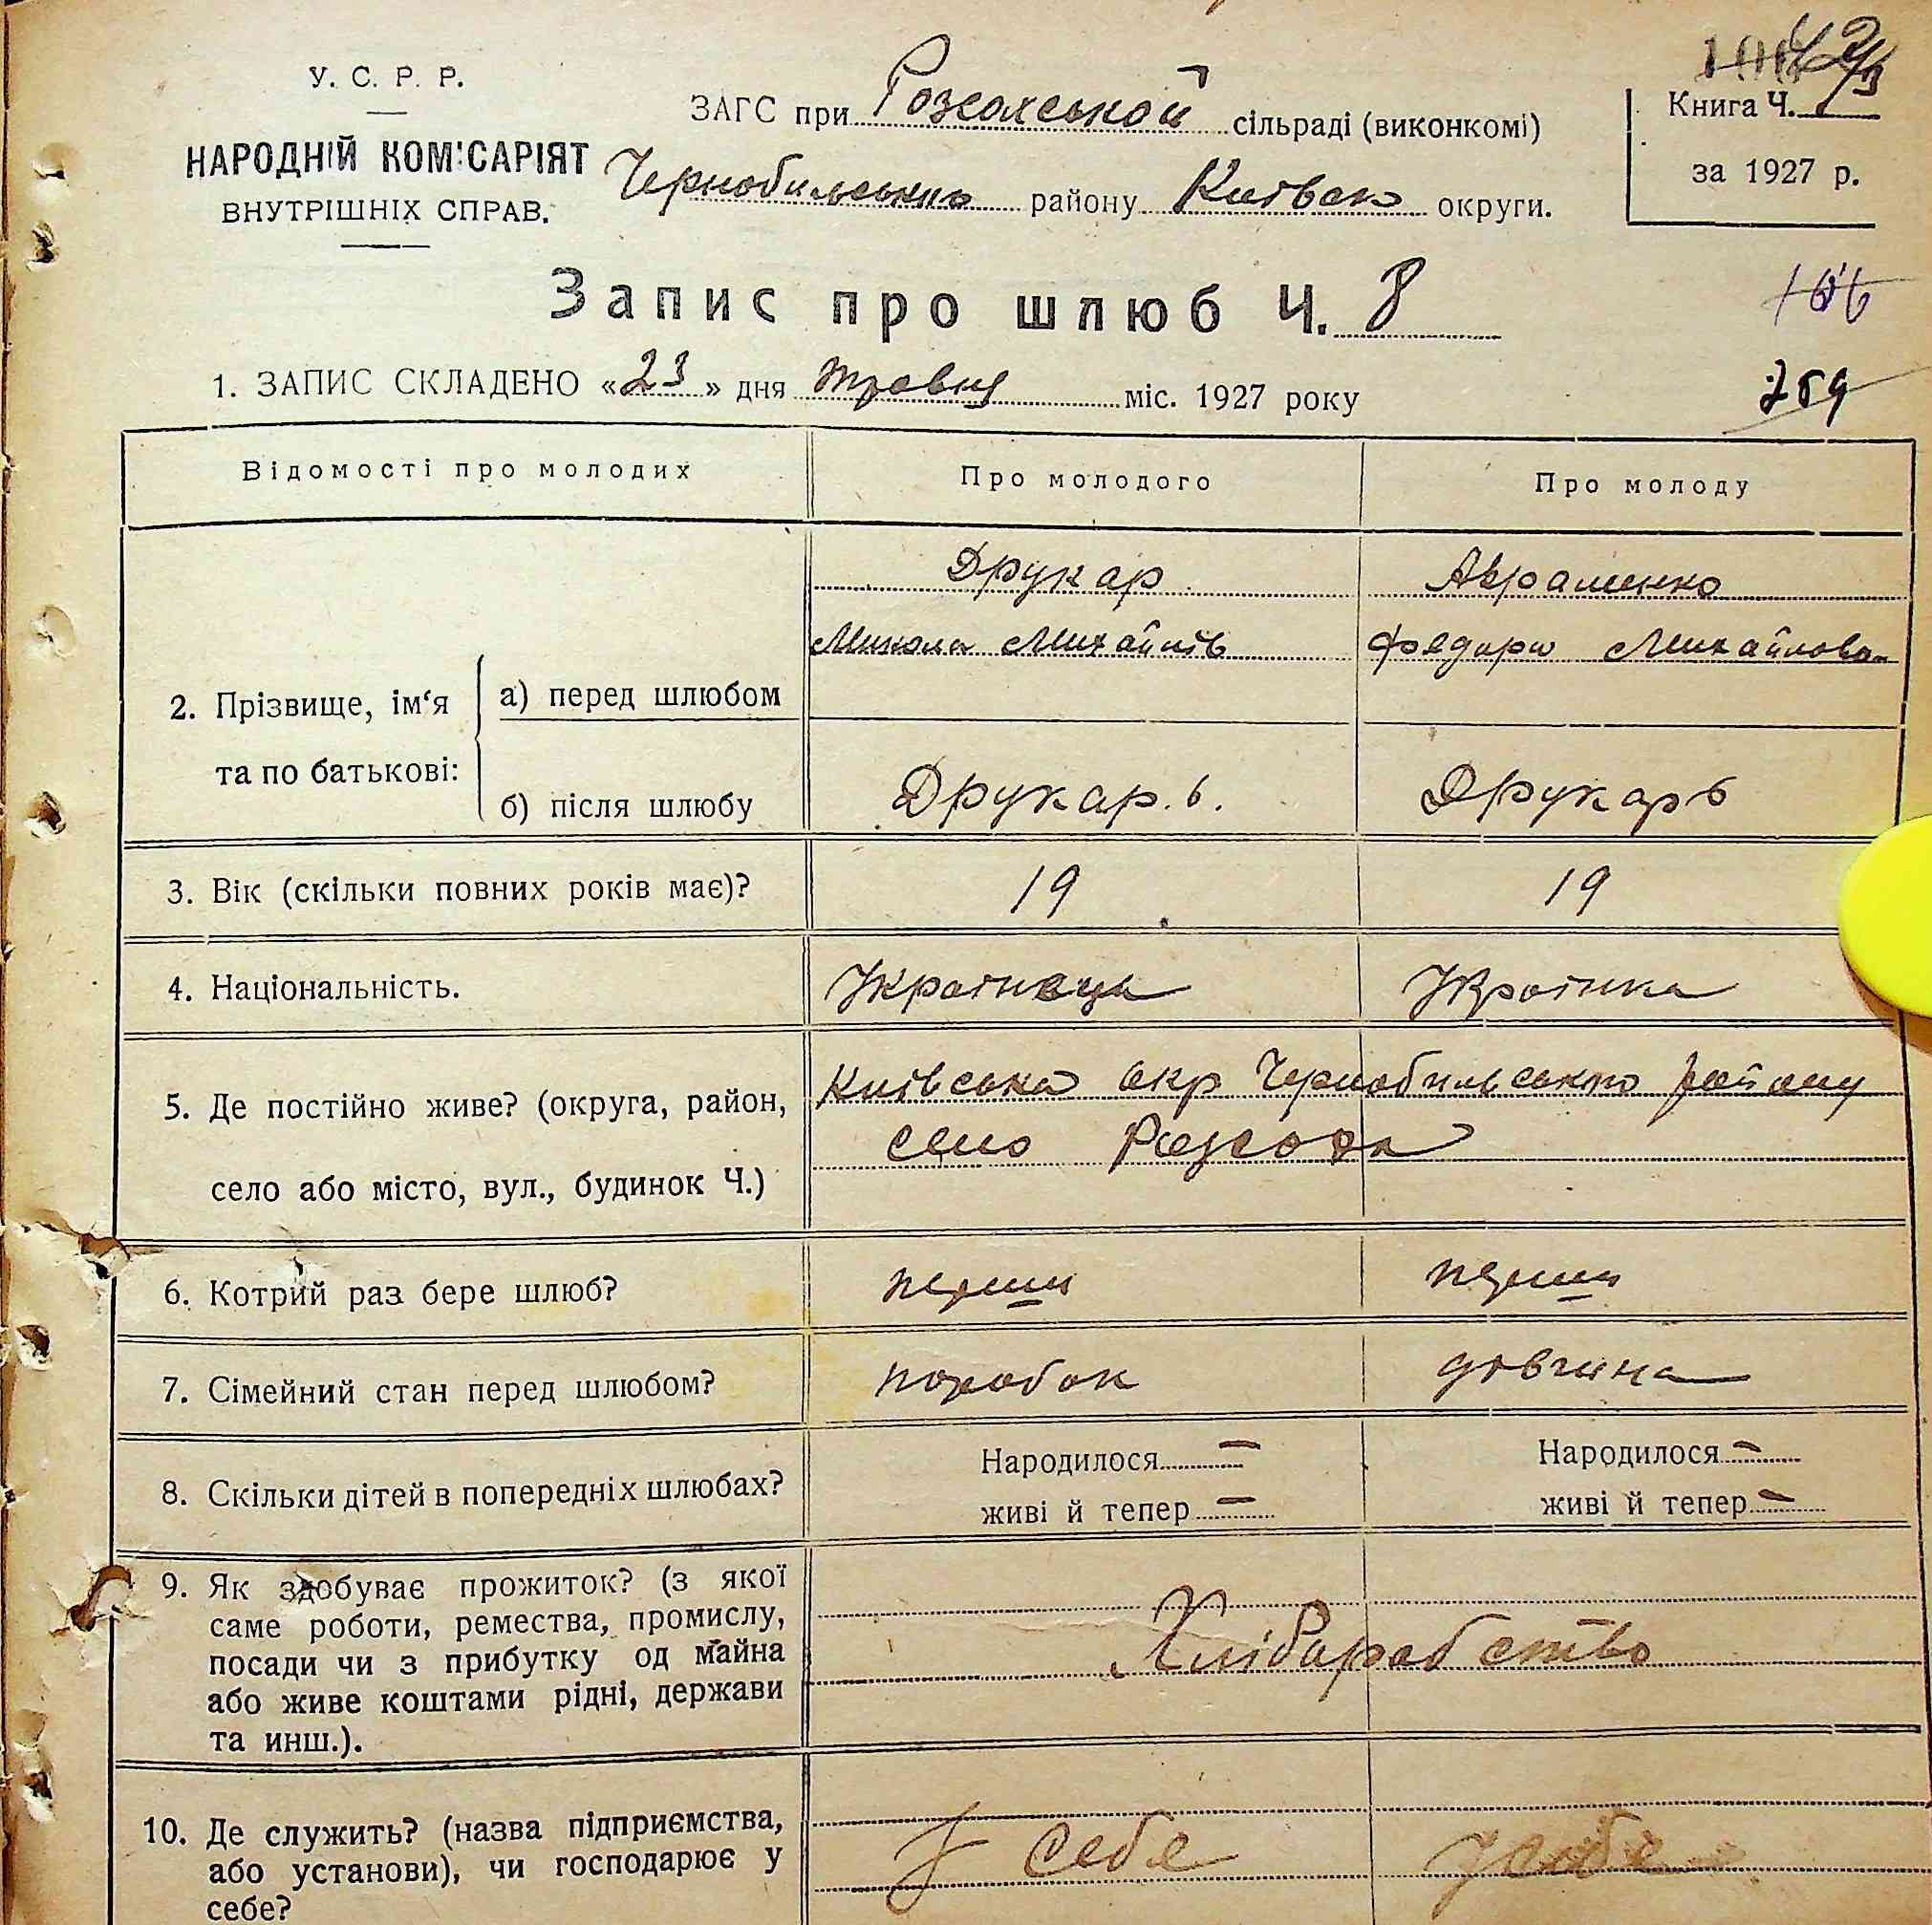 У. С. Р. Р.
НАРОДНІЙ КОМІСАРІЯТ
ВНУТРІШНІХ СПРАВ.
ЗАГС при Розсохської сільраді (виконкомі)
Чернобильського району Київськ округи.
Книга Ч.
за 1927 р.
Запис про шлюб Ч. 8
166
1. ЗАПИС СКЛАДЕНО «23» дня травня міс. 1927 року
269
Відомості про молодих Про молодого Про молоду
Друкар Авраменко
Микола Михайлів Федора Михайлова
2. Прізвище, ім‘я а) перед шлюбом
та по батькові:
б) після шлюбу Друкар.ь. Друкарь
3. Вік (скільки повних років має)? 19 19
4. Національність. Украінець Украінка
5. Де постійно живе? (округа, район, Киівська окр Чернобильського району
село Розсоха
село або місто, вул., будинок Ч.)
6. Котрий раз бере шлюб? перший перший
7. Сімейний стан перед шлюбом? поробок дівчина
8. Скільки дітей в попередніх шлюбах? Народилося — Народилося —
живі й тепер — живі й тепер —
9. Як здобуває прожиток? (з якої
саме роботи, ремества, промислу,
посади чи з прибутку од майна
або живе коштами рідні, держави
та инш.).
Хліборобство
10. Де служить? (назва підприємства,
або установи), чи господарює у
себе?
У себе у себе